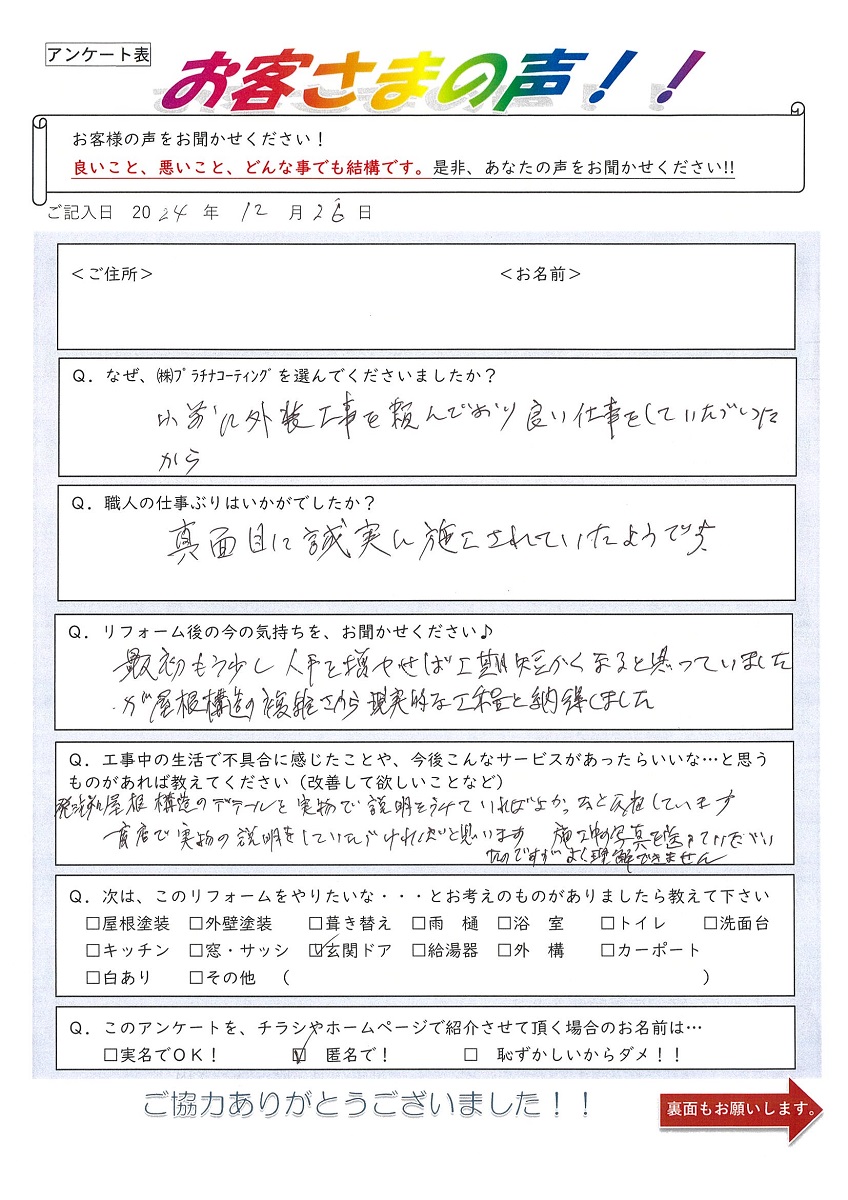 アンケート表
お客さまの声！！
お客様の声をお聞かせください！
良いこと、悪いこと、どんな事でも結構です。是非、あなたの声をお聞かせください!!
ご記入日 2024 年 12 月 26 日
＜ご住所＞ ＜お名前＞
Q．なぜ、㈱ﾌﾟﾗﾁﾅｺｰﾃｨﾝｸﾞを選んでくださいましたか？
以前に外装工事を頼んでおり良い仕事をしていただいた
から
Q．職人の仕事ぶりはいかがでしたか？
真面目に誠実に施工されていたようです
Q．リフォーム後の今の気持ちを、お聞かせください♪
最初もう少し人手を増やせば工期短かくなると思っていました
が屋根構造の複雑さから現実的な工程と納得しました
Q．工事中の生活で不具合に感じたことや、今後こんなサービスがあったらいいな…と思う
ものがあれば教えてください（改善して欲しいことなど）
屋根構造のデテールを実物で説明をうけていればよかったと反省しています
実物の説明をしていただければと思います 施工中の写真を送っていただい
たのですがよく理解できません
Q．次は、このリフォームをやりたいな・・・とお考えのものがありましたら教えて下さい
□屋根塗装 □外壁塗装 □葺き替え □雨 樋 □浴 室 □トイレ □洗面台
□キッチン □窓・サッシ ☑玄関ドア □給湯器 □外 構 □カーポート
□白あり □その他 （ ）
Q．このアンケートを、チラシやホームページで紹介させて頂く場合のお名前は…
□実名でＯＫ！ ☑ 匿名で！ □ 恥ずかしいからダメ！！
ご協力ありがとうございました！！
裏面もお願いします。